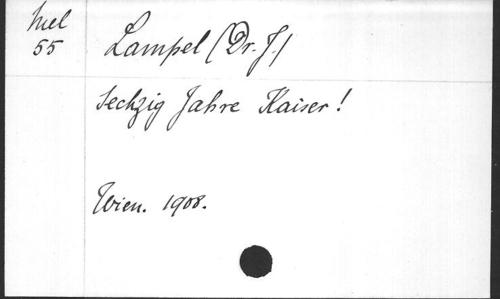 55
Lampel (Dr. J.)
Sechzig Jahre Kaiser!
Wien. 1908.